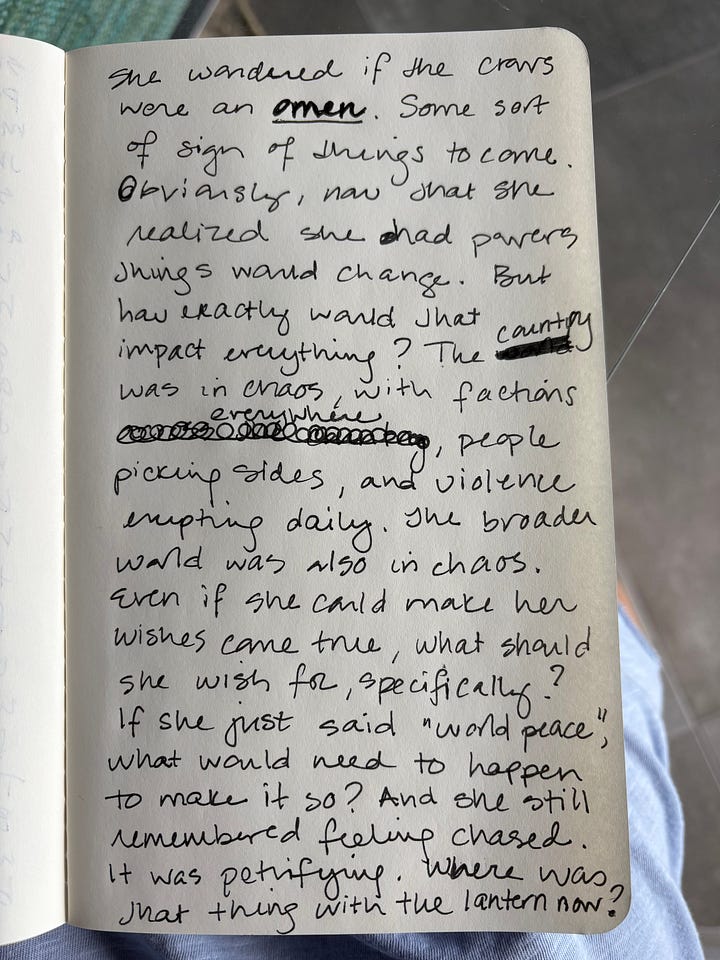 She wondered if the crows
were an omen. Some sort
of sign of things to come.
Obviously, now that she
realized she had powers
things would change. But
how exactly would that
impact everything? The country
was in chaos, with factions
everywhere
, people
picking sides, and violence
erupting daily. The broader
world was also in chaos.
Even if she could make her
wishes come true, what should
she wish for, specifically?
If she just said "world peace",
what would need to happen
to make it so? And she still
remembered feeling chased.
It was petrifying. Where was
that thing with the lantern now?